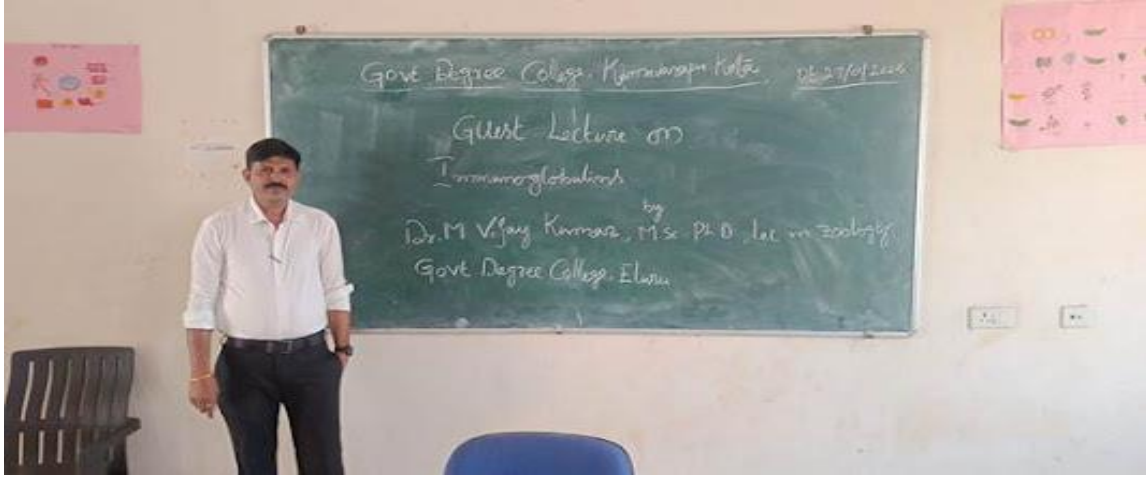 Govt Degree Colege. Kota Dt 27/01/2026
Guest Lecture on
Immunoglobulins
by
Dr. M Vijay Kumar, M Sc Ph D, lec in zoology,
Govt Degree College. Eluru